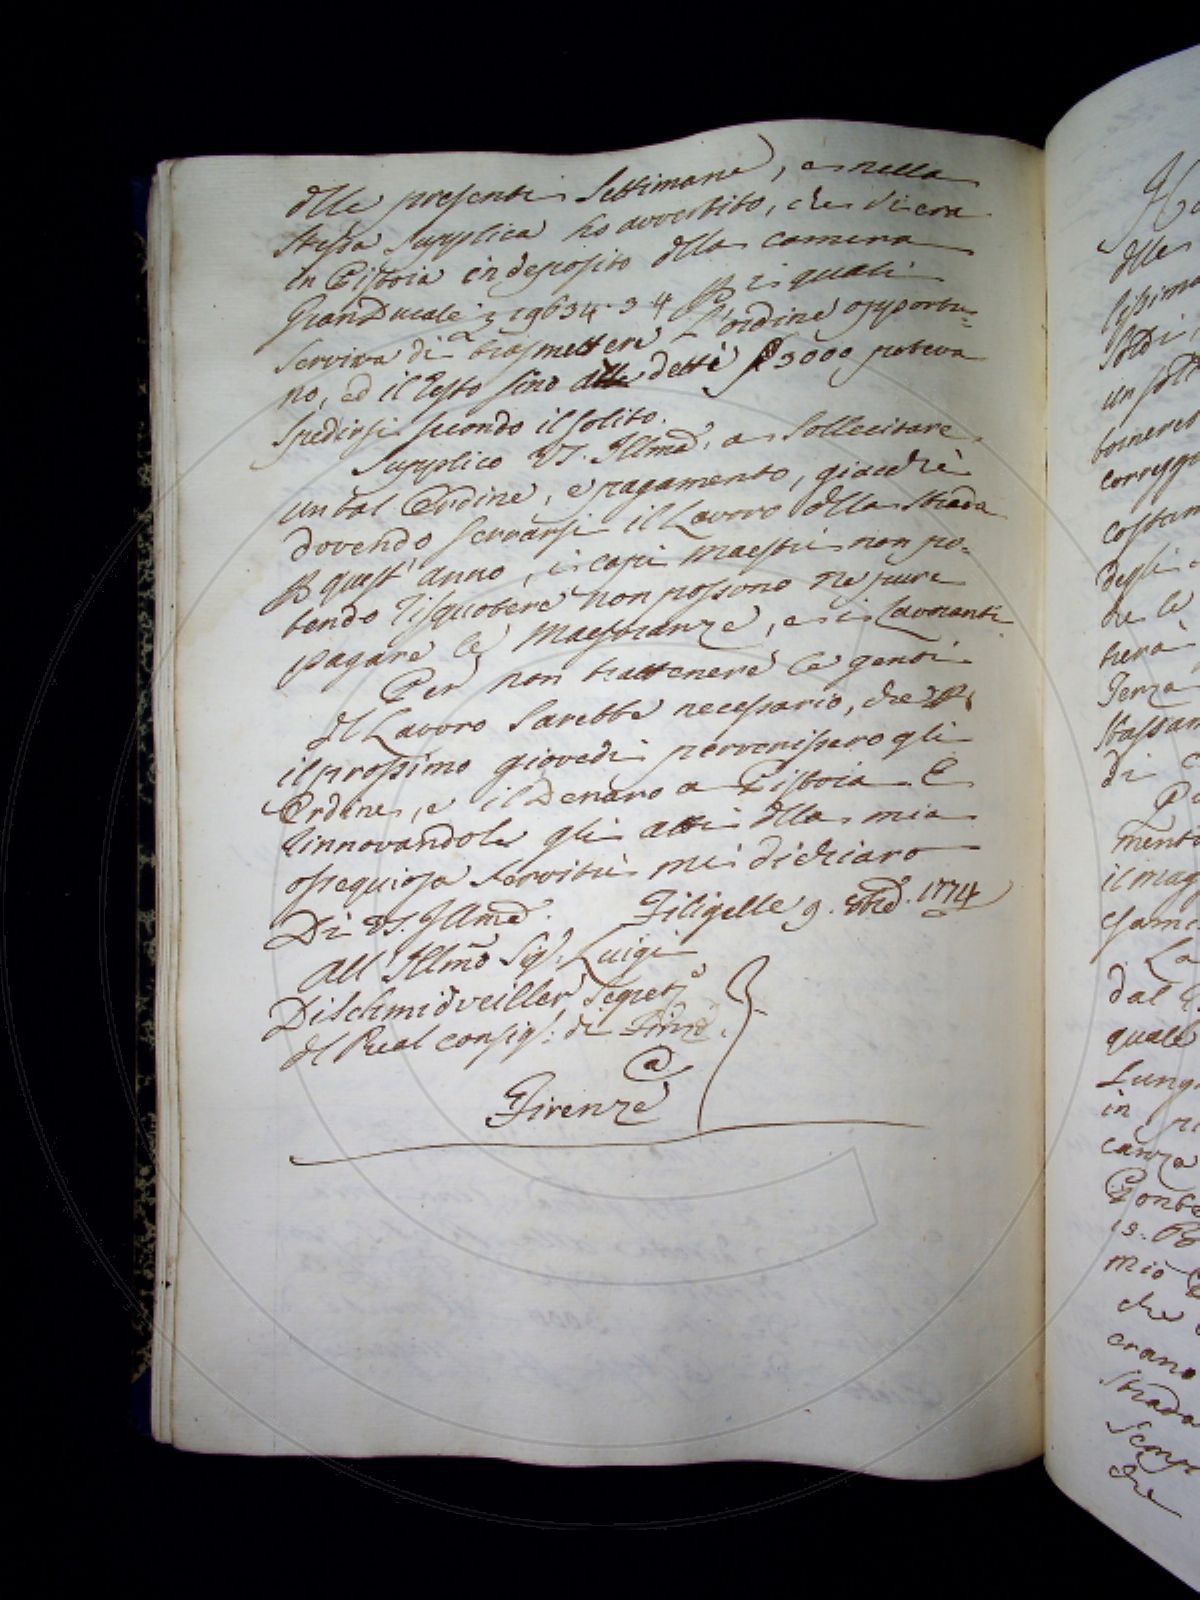 dlle presenti Settimane, e nella
stessa supplica ho avvertito, che vi era
in Pistoia in deposito dlla camera
GranDucale 19634.3.4 p i quali
serviva di trasmettere l'ordine opportu-
no, ed il resto sino alle dette 3000 poteva
spedirsi secondo il solito.
Supplico VS. Illma a sollecitare
un tal Ordine, e pagamento, giacchè
dovendo serrarsi il Lavoro dlla strada
p quest'anno, i capi maestri non po-
tendo risquotere non possono ne pure
pagare le maestranze, e i Lavoranti
Per non trattenere le genti
dl Lavoro sarebbe necessario, che p
il prossimo giovedi pervenissero gli
Ordini, e il Denaro a Pistoia E
rinnovandole gli atti dlla mia
ossequiosa servitù mi dichiaro
Di VS. Illma. Piligelle 9. 1774
All Illmo Sigr. Luigi
Dischmidveiller Segret.o
dl Real consigl: di
a
Firenze
Ho
dlle
un
degli
che le
Terza
di
mento
il mag
La
dal
quale
Lung
in
canza
Ponte
mio
che
erano
strada
Semp
che